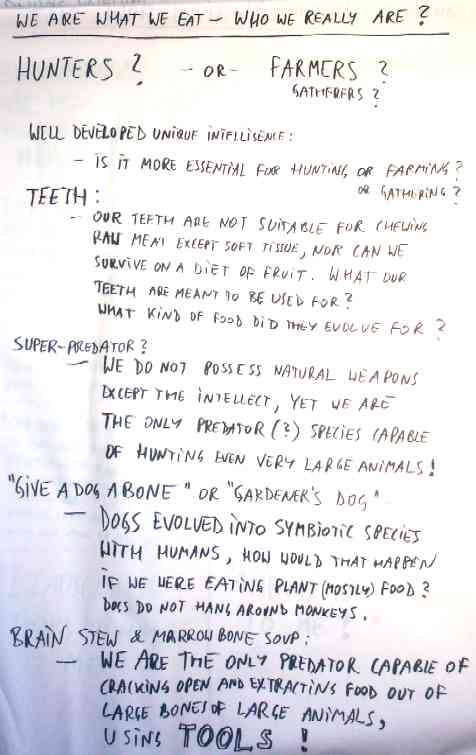 WE ARE WHAT WE EAT - WHO WE REALLY ARE?
HUNTERS? - OR - FARMERS?
GATHERERS?
WELL DEVELOPED UNIQUE INTELLISENCE:
- IS IT MORE ESSENTIAL FOR HUNTING OR FARMING?
OR GATHERING?
TEETH:
- OUR TEETH ARE NOT SUITABLE FOR CHEWING
RAW MEAT EXCEPT SOFT TISSUE, NOR CAN WE
SURVIVE ON A DIET OF FRUIT. WHAT OUR
TEETH ARE MEANT TO BE USED FOR?
WHAT KIND OF FOOD DID THEY EVOLVE FOR?
SUPER-PREDATOR?
- WE DO NOT POSSESS NATURAL WEAPONS
EXCEPT THE INTELLECT, YET WE ARE
THE ONLY PREDATOR(?) SPECIES CAPABLE
OF HUNTING EVEN VERY LARGE ANIMALS!
"GIVE A DOG A BONE" OR "GARDENER'S DOG"
- DOGS EVOLVED INTO SYMBIOTIC SPECIES
WITH HUMANS, HOW WOULD THAT HAPPEN
IF WE WERE EATING PLANT (MOSTLY) FOOD?
DOGS DO NOT HANG AROUND MONKEYS.
BRAIN STEW & MARROW BONE SOUP:
- WE ARE THE ONLY PREDATOR CAPABLE OF
CRACKING OPEN AND EXTRACTING FOOD OUT OF
LARGE BONES OF LARGE ANIMALS,
USING TOOLS!